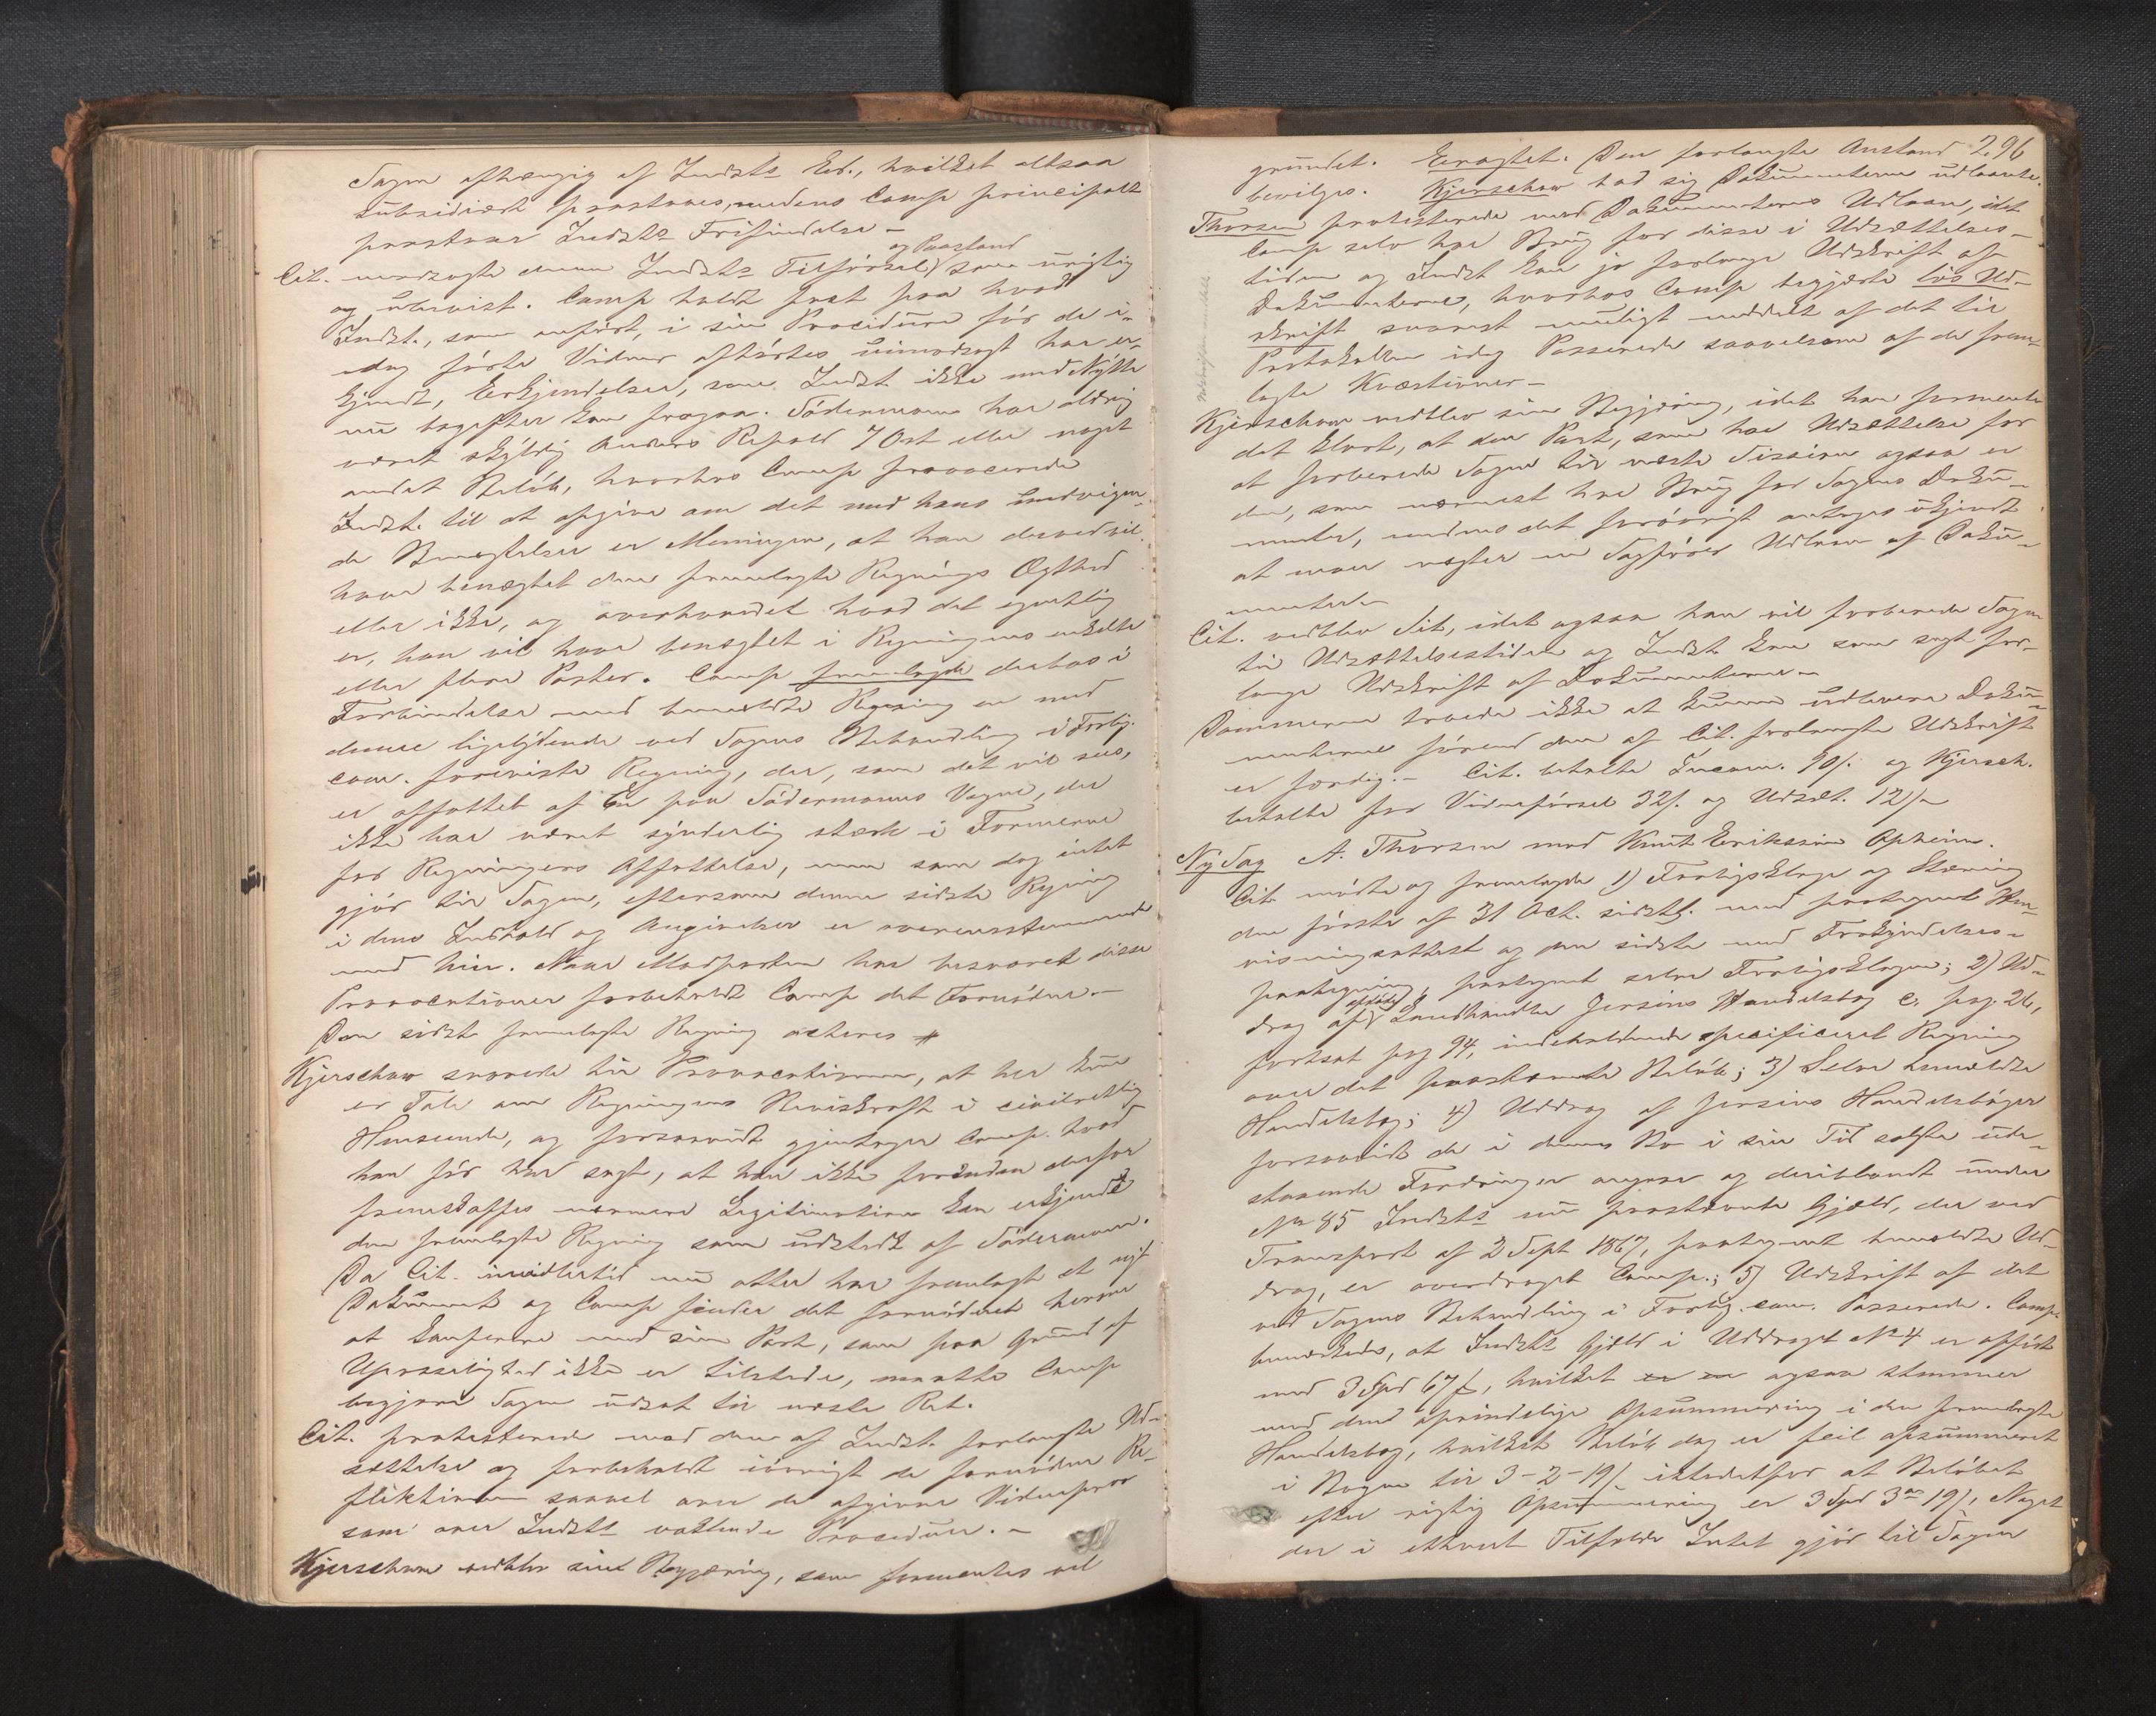 Sagen afhængig af Indsts Ed., hvilket altsaa
subsidiært paastaaes, medens Comp principalt
paastaar Indsts Frifindelse –
og Paastand
Cit. modsagde denne Indsts Tilførsel som urigtig
og ubevist. Comp holdt fast paa hvad
Indst., som anført, i sin Procedure før de i-
dag førte Vidner afhørtes uimodsagt har er-
kjendt, Erkjendelser, som Indst ikke med Nytte
nu bagefter kan fragaa. Södermann har aldrig
været skyldig Anders Refald 7 Ort eller noget
andet Beløb, hvorhos Comp provocerede
Indst. til at opgive om det med hans undvigen-
de Benægtelser er Meningen, at han derved vil
have benægtet den fremlagte Regnings Ægthed
eller ikke, og overhovedet hvad det egentlig
er, han vil have benægtet i Regningens enkelte
eller flere Poster. Comp fremlagde derhos i
Forbindelse med bemeldte Regning en med
denne ligelydende ved Sagens Behandling i Forlig.
com. foreviste Regning, der, som det vil sees,
er affattet af En paa Södermanns Vegne, der
ikke har været synderlig stærk i Formerne
for Regningers Affattelse, men som dog intet
gjør til Sagen, eftersom denne sidste Regning
i dens Indhold og Angivelser er overensstemmende
med hin. Naar Modparten har besvaret disse
Provocationer forbeholdt Comp det Fornødne. –
Den sidst fremlagte Regning acteres #
Kjerschow svarede til Provocationen, at her kun
er Tale om Regningens Beviskraft i civilretlig
Henseende, og forsaavidt gjentager Comp. hvad
han før har sagt, at han ikke forinden derfor
fremskaffes nærmere Legitimation kan erkjendt
den fremlagte Regning som udstedt af Södermann.
Da Cit. imidlertid nu atter har fremlagt et nyt
Dokument og Comp finder det fornødent herom
at konferere med sin Part, som paa Grund af
Upasselighed ikke er tilstede, maatte Comp
begjære Sagen udsat til næste Ret.
Cit. protesterede mod den af Indst. forlangte Ud-
sættelse og forbeholdt iøvrigt de fornødne Re-
flektioner saavel over de afgivne Vidneprov
som over Indsts vaklende Procedure. –
Kjerschow vedblev sin Begjæring, som formentes vel
296
grundet. Eragtet. Den forlangte Anstand
bevilges. Kjerschow bad sig Dokumenterne udlaante.
Thorsen protesterede mod Dokumenternes Udlaan, idet
Comp selv har Brug for disse i Udsættelses-
tiden og Indst kan jo forlange Udskrift af
Dokumenterne, hvorhos Comp begjærte løs Ud-
skrift snarest muligt meddelt af det til
Protokollen idag Passerede saavelsom af de frem-
lagte Kvæstioner –
Kjerschow vedblev sin Begjæring, idet han formente
det klart, at den Part, som har Udsættelse for
at forberede Sagen til næste Session ogsaa er
den, som nærmest har Brug for Sagens Doku-
menter, medens det forøvrigt antages ukjendt
at man nægter en Sagfører Udlaan af Doku-
menter –
Cit. vedblev Sit, idet ogsaa han vil forberede Sagen
til Udsættelsestiden og Indst. kan som sagt for-
lange Udskrift af Dokumenterne –
Dommeren troede ikke at kunne udlevere Doku-
menterne førend den af Cit. forlangte Udskrift
er færdig. – Cit. betalte Incam. 90/. og Kjersch.
betalte for Vidneførsel 32/. og Udsæt. 12/. –
Ny Sag A. Thorsen mod Knut Erikssøn Opheim.
Cit mødte og fremlagde 1) Forligsklage og Stævning
den første af 31 Oct. sidstl. med paategnet Hen-
visningsattest og den sidste med Forkyndelses-
paategning, paategnet selve Forligsklagen; 2) Ud-
afdøde
drag af Landhandler Jersins Handelsbog C. pag. 26,
fortsat pag 94, indeholdende specificeret Regning
over det paastævnte Beløb; 3) Selve bemeldte
Handelsbog; 4) Uddrag af Jersins Handelsbøger
forsaavidt de i dennes Bo i sin Tid solgte ude-
staaende Fordringer angaar og deriblandt under
No 85 Indsts nu paastævnte Gjæld, der ved
Transport af 2 Sept 1867, paategnet bemeldte Ud-
drag, er overdraget Comp.; 5) Udskrift af det
ved Sagens Behandling i Forlig. com. Passerede. Comp.
bemærkede, at Indsts Gjæld i Uddraget No 4 er opført
med 3 Spd 67 s, hvilket ogsaa stemmer
med den oprindelige Opsummering i den fremlagte
Handelsbog, hvilket Beløb dog er feil opsummeret
i Bogen til 3-2-19/. istedetfor at Beløbet
efter rigtig Opsummering er 3 Spd 3 ort 19/, Noget
der i ethvert Tilfælde Intet gjør til Sagen